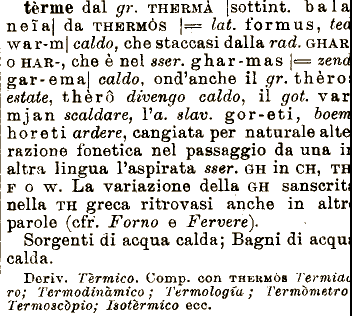 tèrme dal gr. THERMÀ |sottint. bala
neĩa| da THERMÒS |= lat. formus, ted
war-m| caldo, che staccasi dalla rad. GHAR
o HAR-, che è nel sser. ghar-mas |= zend
gar-ema| caldo, ond'anche il gr. thèro
estate, thèrô divengo caldo, il got. var
mjan scaldare, l'a. slav. gor-eti, boem
horeti ardere, cangiata per naturale alte
razione fonetica nel passaggio da una in
altra lingua l'aspirata sser. GH in CH, TH
F o W. La variazione della GH sanscrita
nella TH greca ritrovasi anche in altre
parole (cfr. Forno e Fervere).
Sorgenti di acqua calda; Bagni di acqua
calda.
Deriv. Tèrmico. Comp. con THERMÒS Termiac
ro; Termodinàmico; Termologia; Termòmetro
Termoscòpio; Isotèrmico ecc.